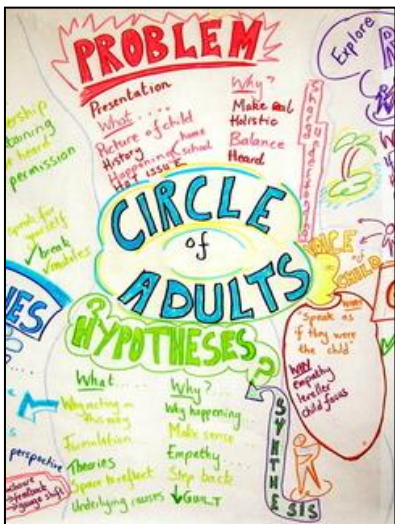 PROBLEM
Presentation
What.....
Picture of child
History
home
Happening school
Hot issue
Why?
Make real
Holistic
Balance
Heard
Shared understanding
Explore
ership
taining
heard
permission
speak for
yourself
✓ break
✓ mobiles
CIRCLE
of
ADULTS
VOICE of CHILD
"Speak as
if they were
the child"
WHY
empathy
leveller
child focus
? HYPOTHESES ?
What....
Why acting in
this way
Formulation
Theories
Space to reflect
Underlying causes
Why?...
Why happening
Make sense...
Empathy....
Step back
↓ GUILT
SYNTHESIS
perspective
feedback
gauge shift